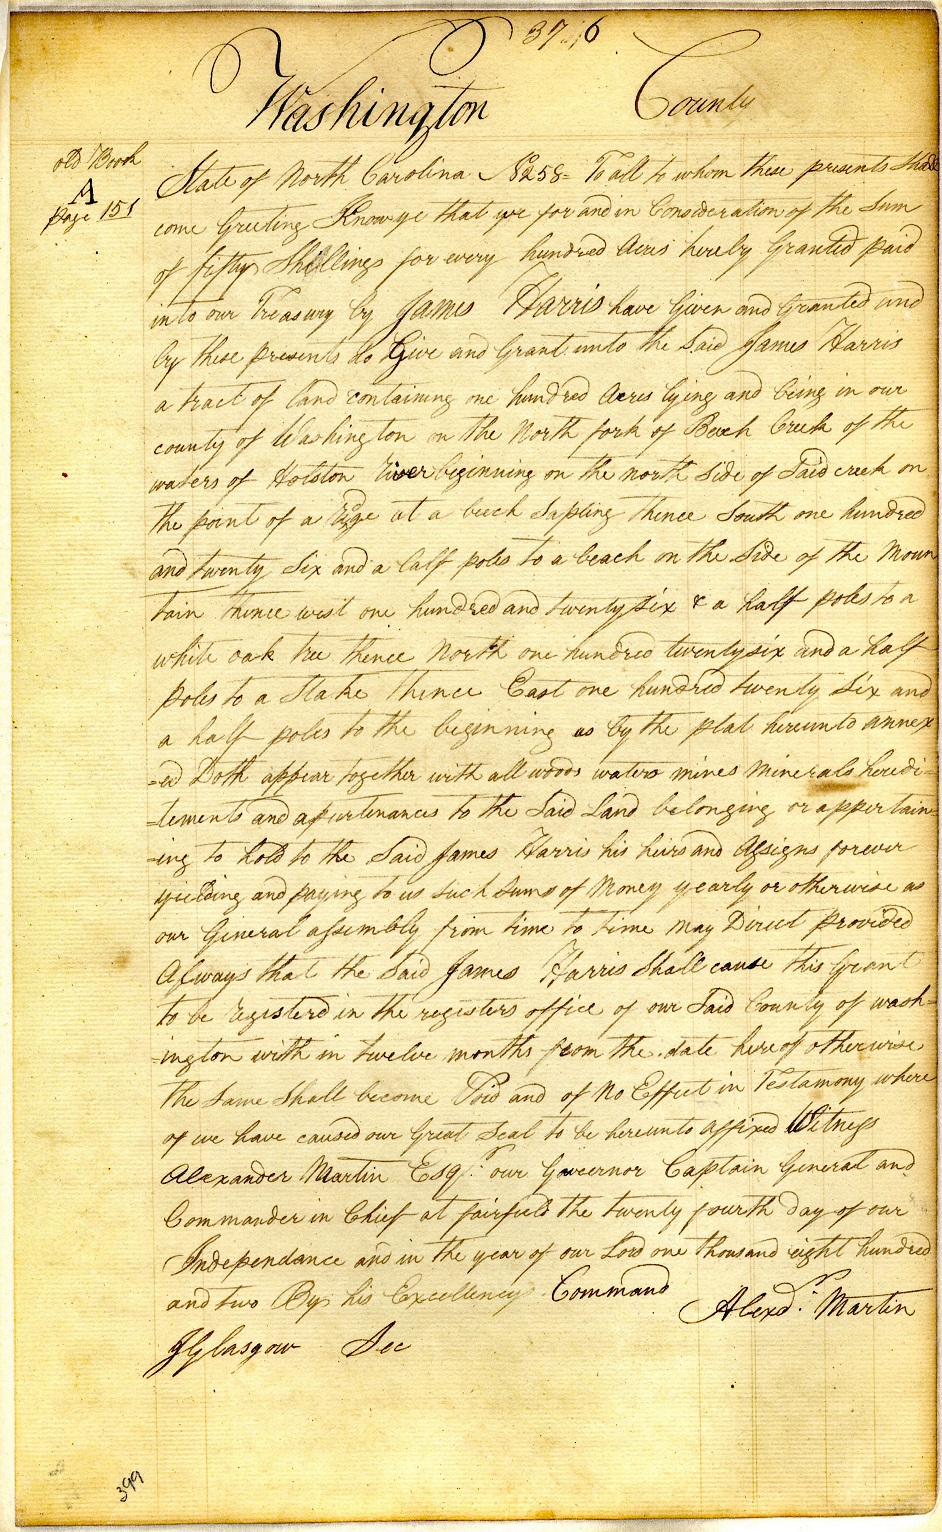 37.16
Washington County
old Book
A
page 151
State of North Carolina No 258 = To all to whom these presents Shall
come Greeting Know ye that we for and in Consideration of the Sum
of fifty Shillings for every hundred Acres hereby Granted paid
into our Treasury by James Harris have Given and Granted and
by these presents do Give and Grant unto the Said James Harris
a tract of land containing one hundred Acres lying and being in our
county of Washington on the North fork of Beech Creek of the
waters of Holston River beginning on the north Side of Said creek on
the point of a Ridge at a beech Sapling thence South one hundred
and twenty Six and a half poles to a beach on the Side of the Moun
tain thence west one hundred and twenty six & a half poles to a
white oak tree thence North one hundred twenty six and a half
poles to a Stake thence East one hundred twenty Six and
a half poles to the beginning as by the plat hereunto annex
=ed Doth appear together with all woods waters mines Minerals heredi=
=tements and apurtenances to the Said Land belonging or appertain=
=ing to hold to the Said James Harris his heirs and Assigns forever
yielding and paying to us such Sums of Money yearly or otherwise as
our General assembly from time to time may Direct provided
Always that the Said James Harris Shall cause this Grant
to be Registerd in the registers office of our Said County of wash=
=ington with in twelve months from the date hereof otherwise
the Same Shall become Void and of No Effect in Testamony where
of we have caused our Great Seal to be hereunto affixed Witness
Alexander Martin Esqr. our Governor Captain General and
Commander in Chief at fairfield the twenty fourth day of our
Independance and in the year of our Lord one thousand eight hundred
and two By his Excellency Command Alexdr. Martin
JGlasgow Sec
399